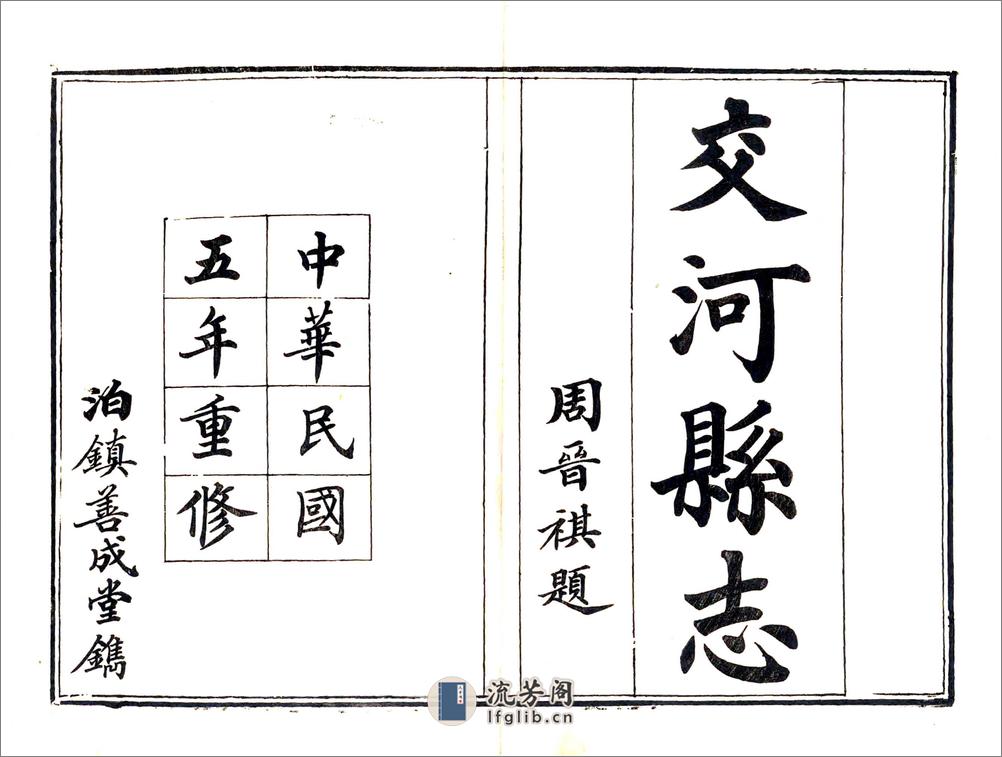 交河縣志
周晉祺題
中華民國
五年重修
泊鎮善成堂鐫
流芳阁
lfglib.cn